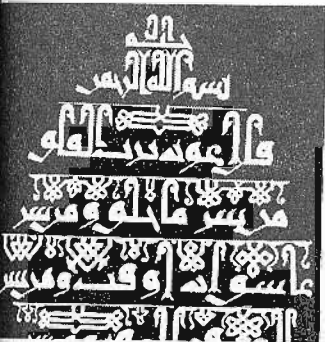 بسم الله الرحمن
قل اعوذ برب الفلق
من شر ما خلق ومن شر
غاسق اذا وقب ومن شر